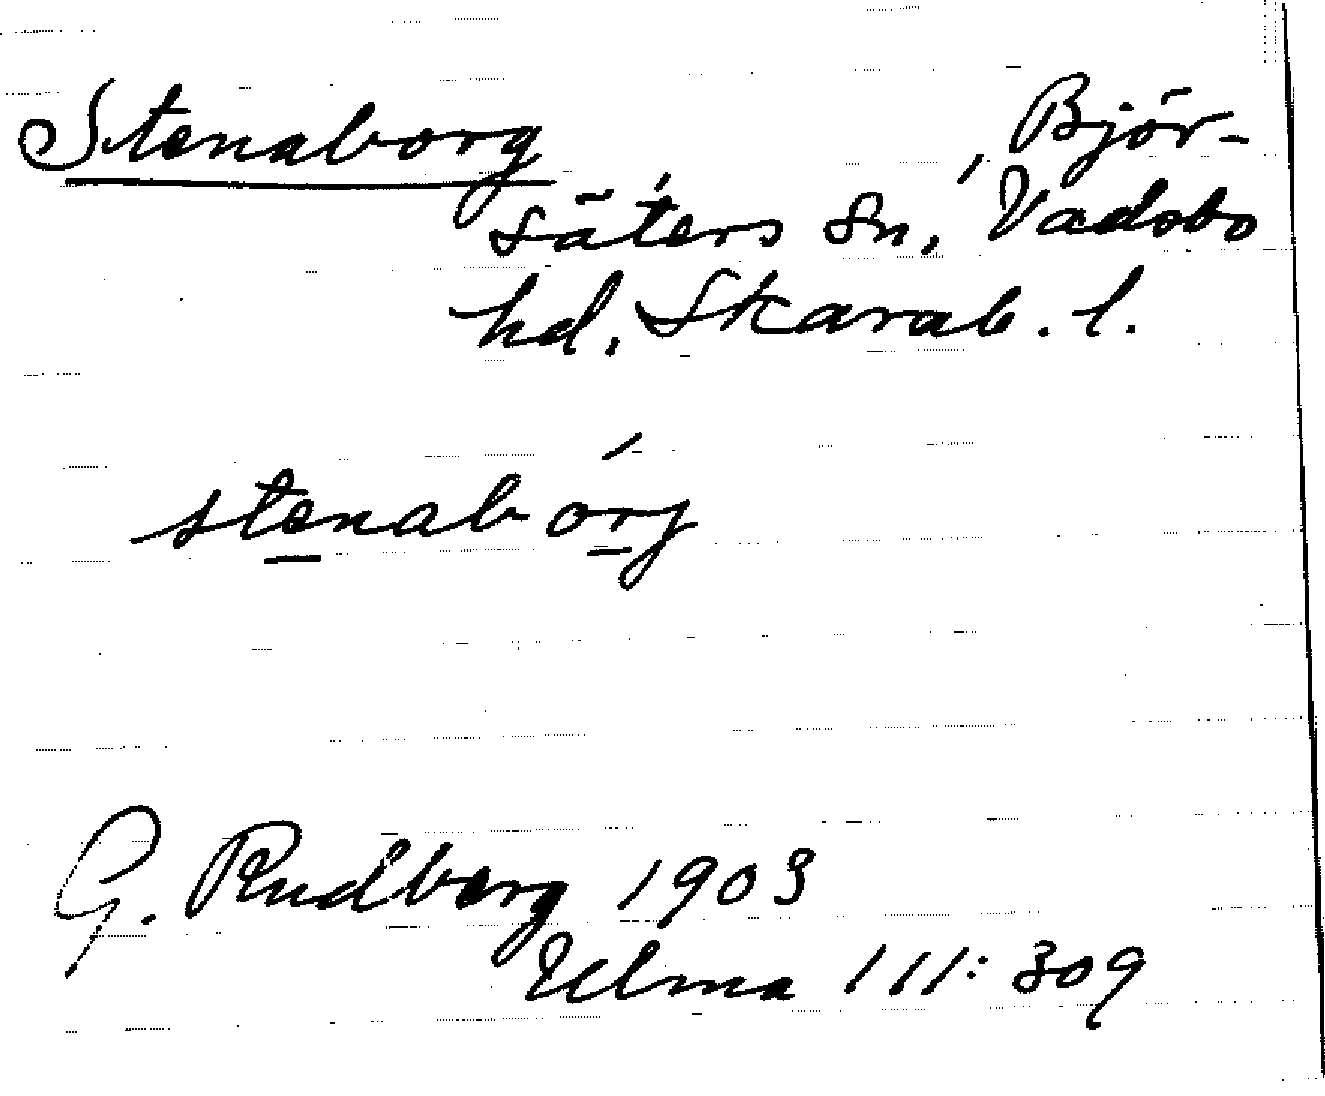 Stenaborg, Björ-
säters sn, Vadsbo
hd. Skarab. l.
stenabórg
G. Rudberg 1903
Ulma 111:309